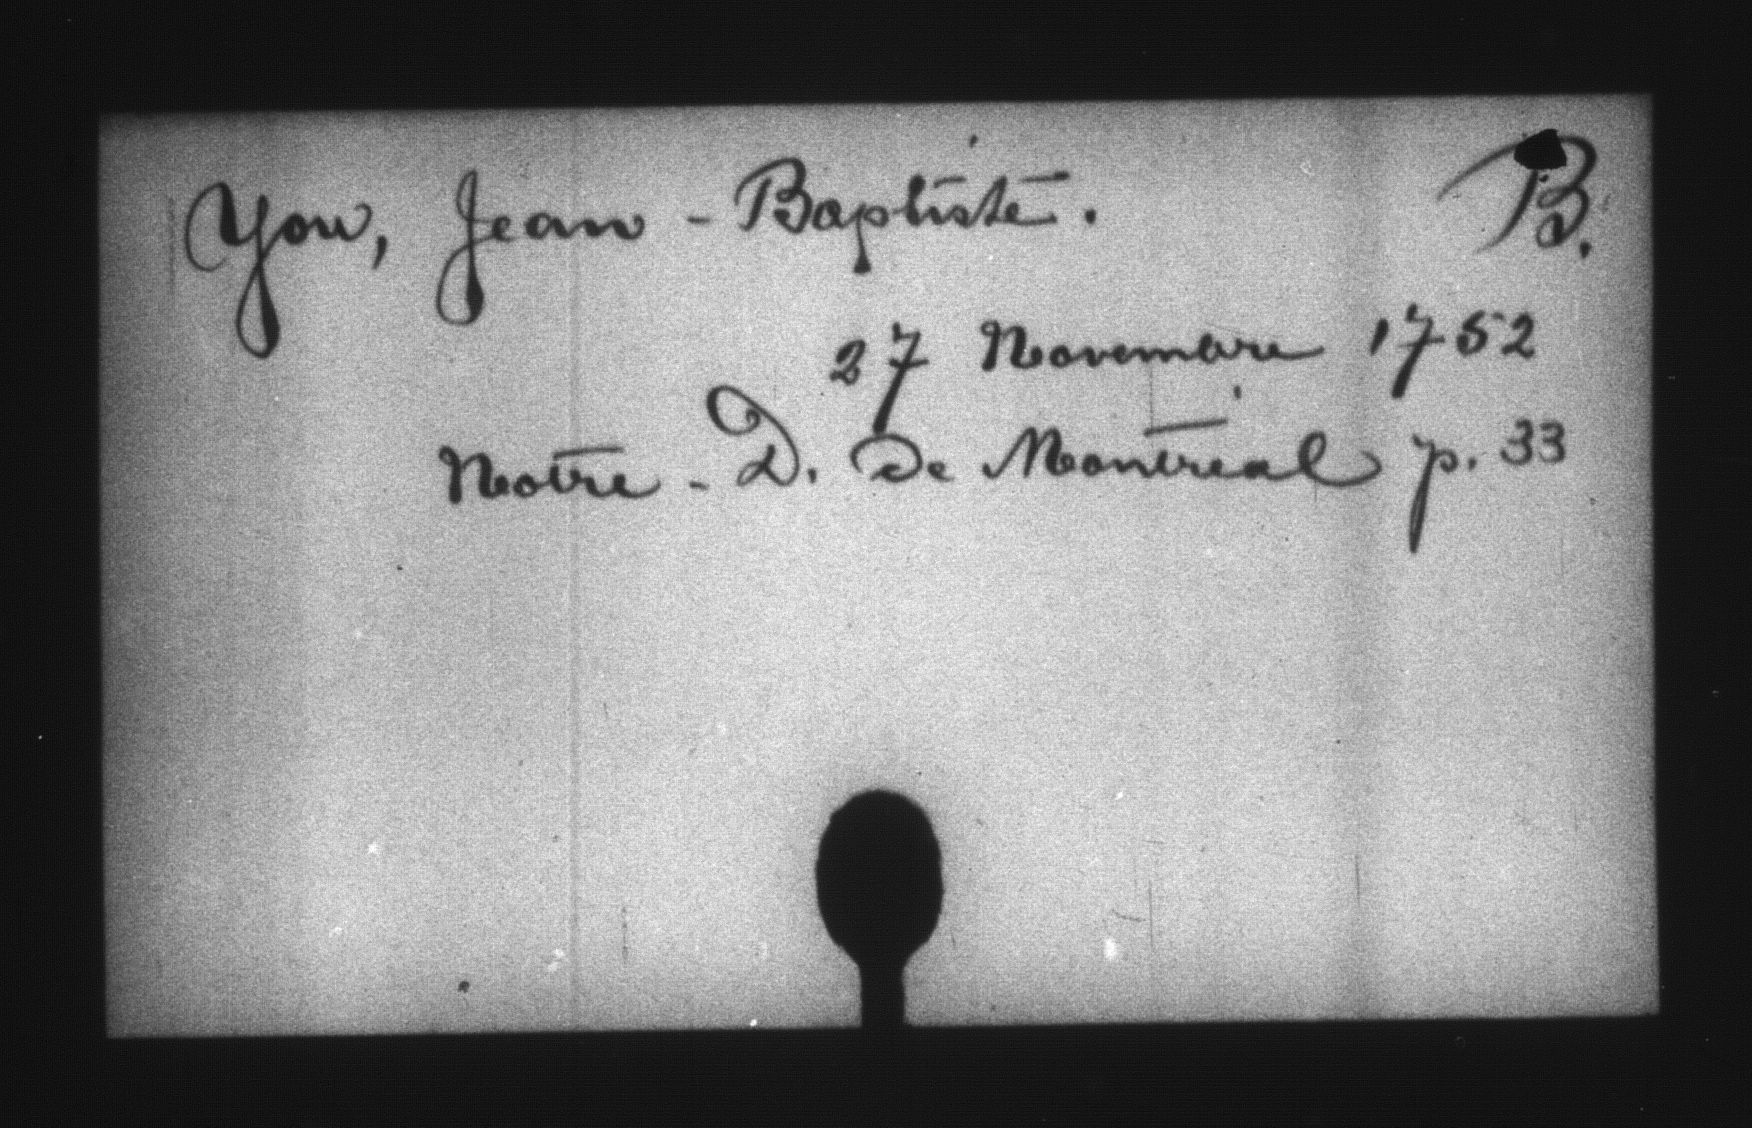 You, Jean-Baptiste. B.
27 Novembre 1752
Notre-D. De Montréal p. 33